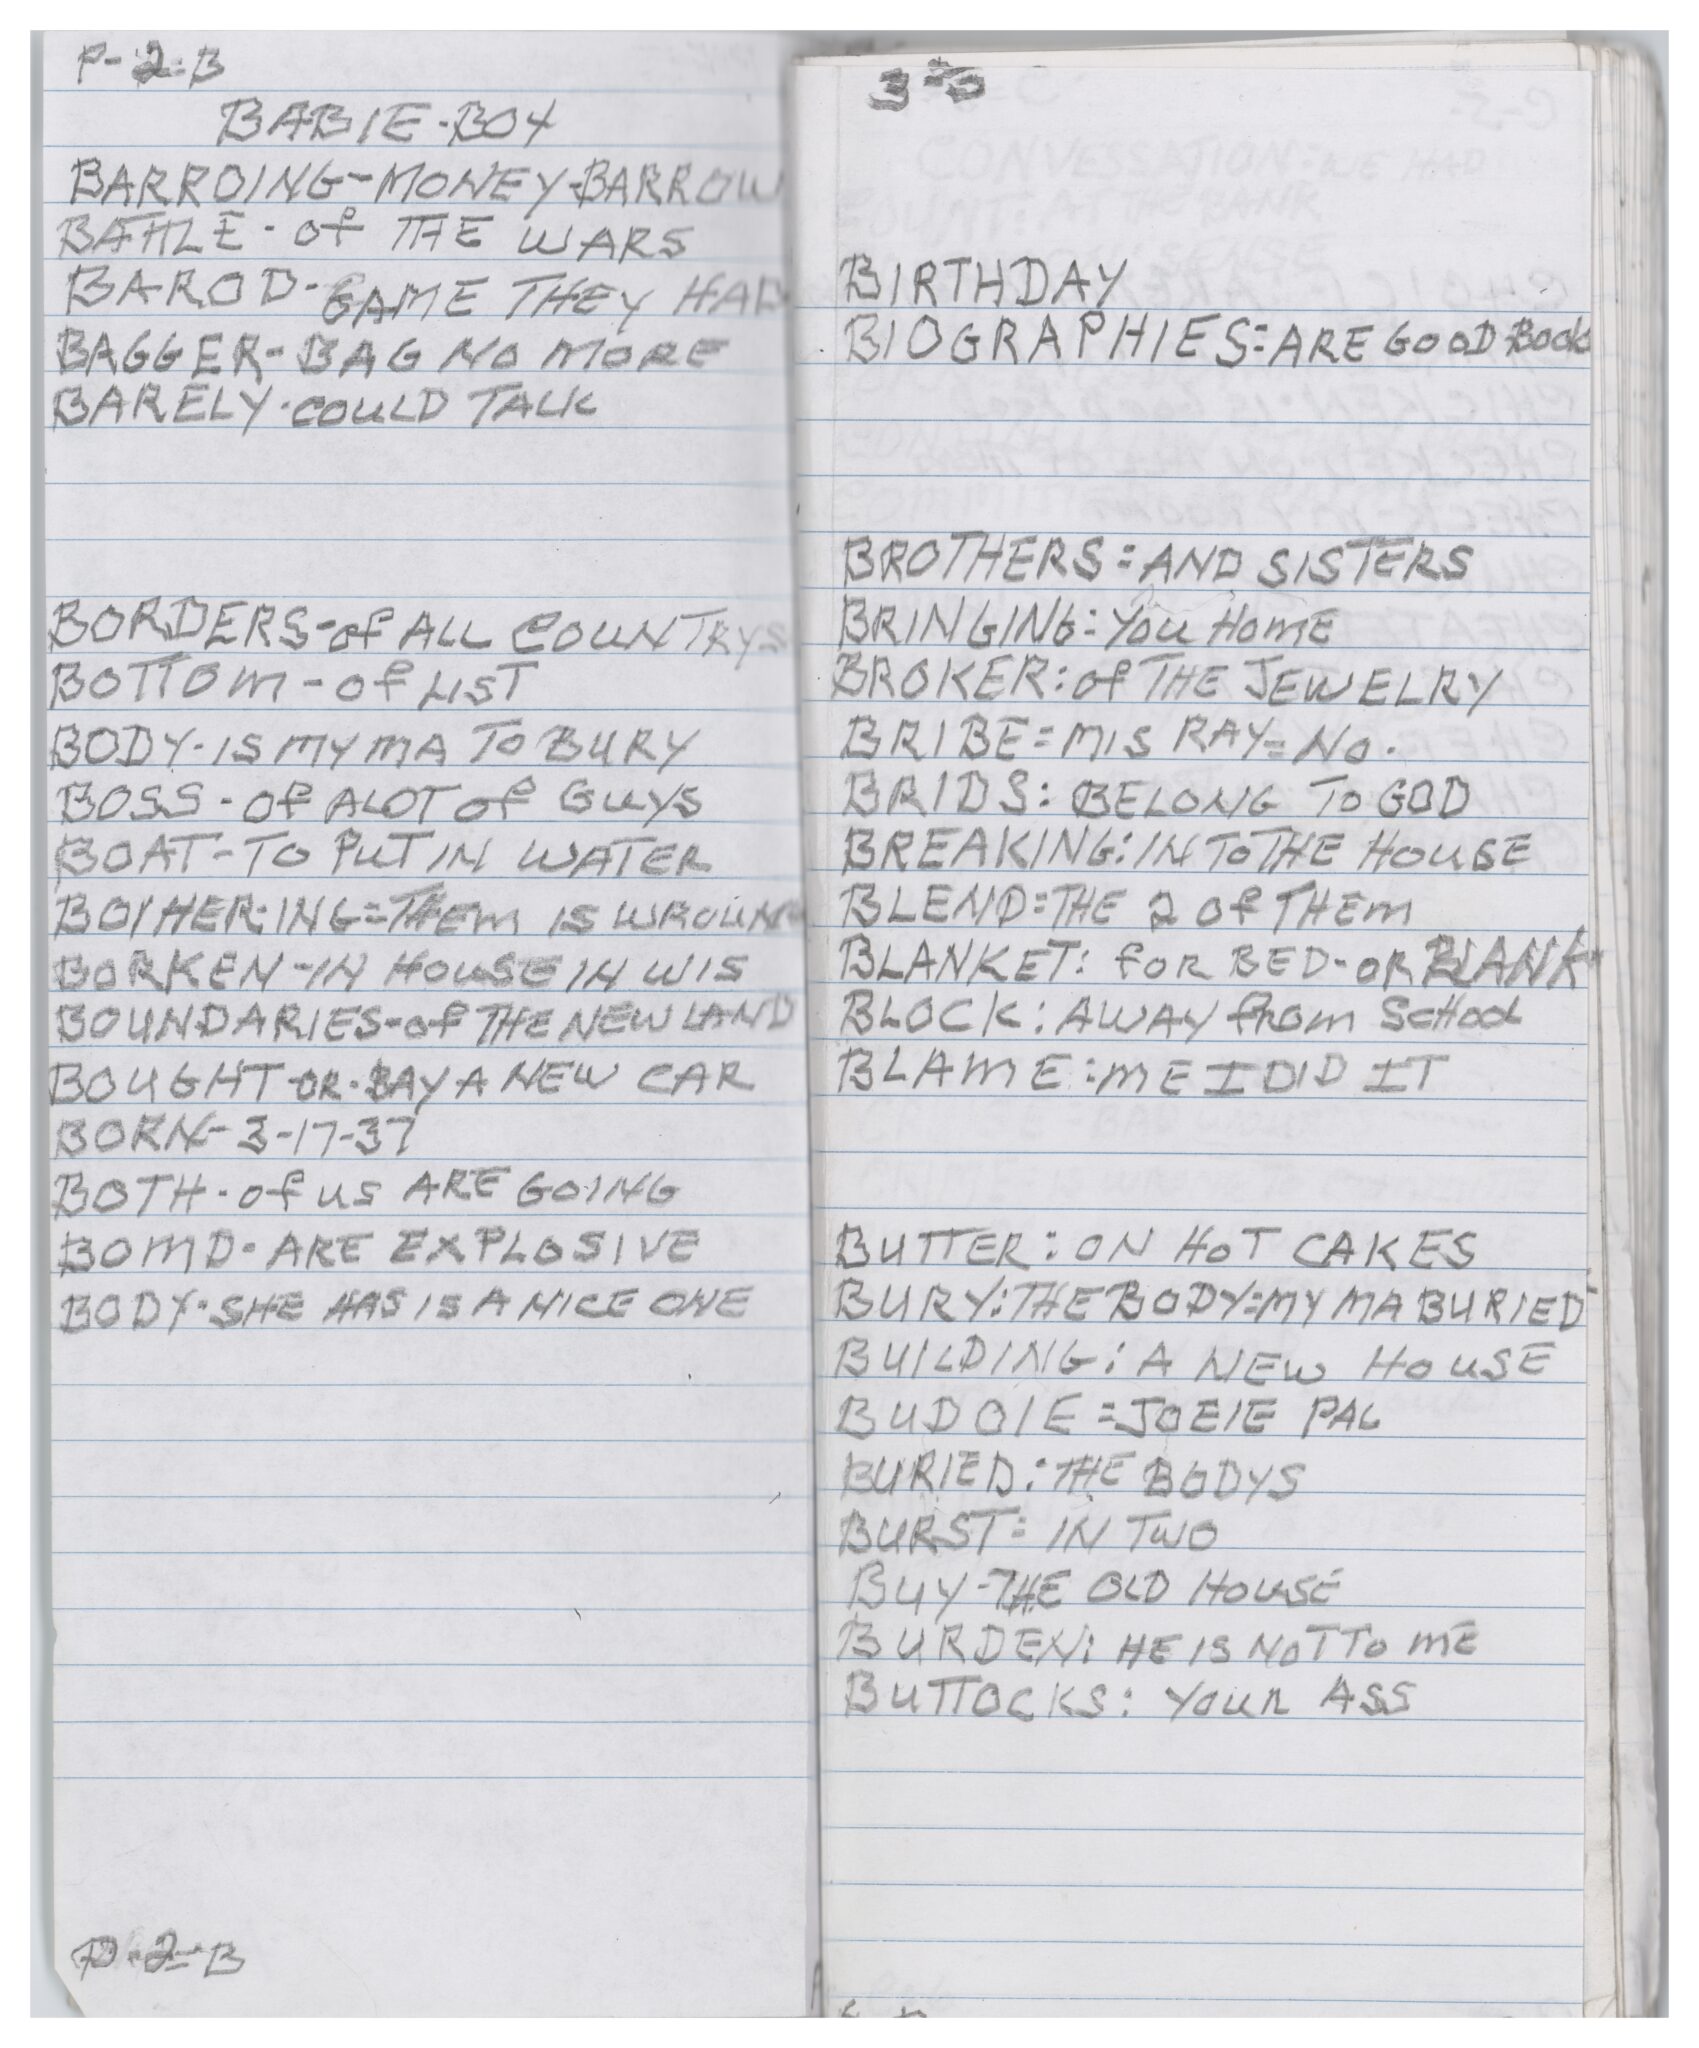 P-2-B
BABIE-BOY
BARROING-MONEY-BARROW
BATTLE-of THE WARS
BAROD-GAME THEY HAD
BAGGER-BAG NO MORE
BARELY-COULD TALK
BORDERS-of ALL COUNTRYS
BOTTOM-of LIST
BODY-IS MY MA TO BURY
BOSS-of ALOT of GUYS
BOAT-TO PUT IN WATER
BOTHER-ING=THEM IS WROUN
BORKEN-IN HOUSE IN WIS
BOUNDARIES-of THE NEW LAND
BOUGHT-OR-BAY A NEW CAR
BORN-3-17-37
BOTH-of us ARE GOING
BOMD-ARE EXPLOSIVE
BODY-SHE HAS IS A NICE ONE
P-2-B
BIRTHDAY
BIOGRAPHIES=ARE GOOD BOOK
BROTHERS=AND SISTERS
BRINGING:YOU HOME
BROKER:of THE JEWELRY
BRIBE=MIS RAY=NO.
BRIDS:BELONG TO GOD
BREAKING:IN TO THE HOUSE
BLEND=THE 2 of THEM
BLANKET: for BED-OR BLANK
BLOCK:AWAY from SCHOOL
BLAME:ME I DID IT
BUTTER:ON HOT CAKES
BURY:THE BODY=MY MA BURIED
BUILDING:A NEW HOUSE
BUDDIE=JOEIE PAL
BURIED:THE BODYS
BURST=IN TWO
BUY-THE OLD HOUSE
BURDEN:HE IS NOT TO ME
BUTTOCKS:YOUR ASS